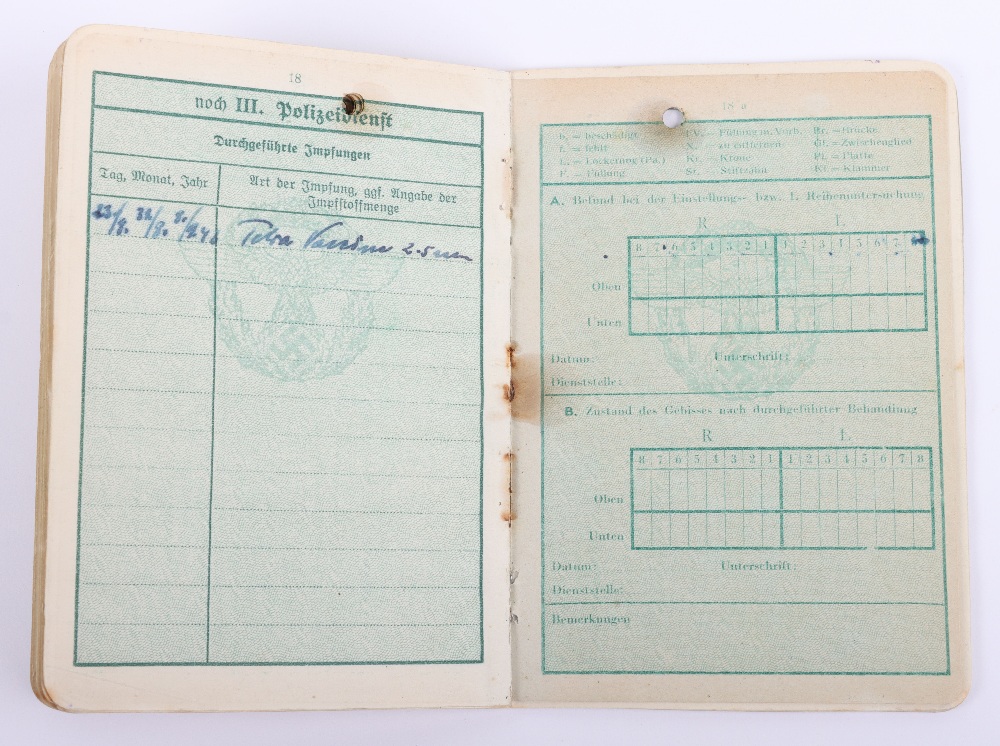 18
noch III. Polizeidienst
Durchgeführte Impfungen
Tag, Monat, Jahr
Art der Impfung, ggf. Angabe der
Impfstoffmenge
2.5
18 a
b. = beschädigt
f. = fehlt
L. = Lockerung (Pa.)
F. = Füllung
FV. = Füllung m. Vorb.
X. = zu entfernen
Kr. = Krone
St. = Stiftzahn
Br. = Brücke
Gf. = Zwischenglied
Pl. = Platte
Kl = Klammer
A. Befund bei der Einstellungs- bzw. 1. Reihenuntersuchung
R L
8 7 6 5 4 3 2 1 1 2 3 4 5 6 7
Oben
Unten
Datum: Unterschrift:
Dienststelle:
B. Zustand des Gebisses nach durchgeführter Behandlung
R L
8 7 6 5 4 3 2 1 1 2 3 4 5 6 7 8
Oben
Unten
Datum: Unterschrift:
Dienststelle:
Bemerkungen